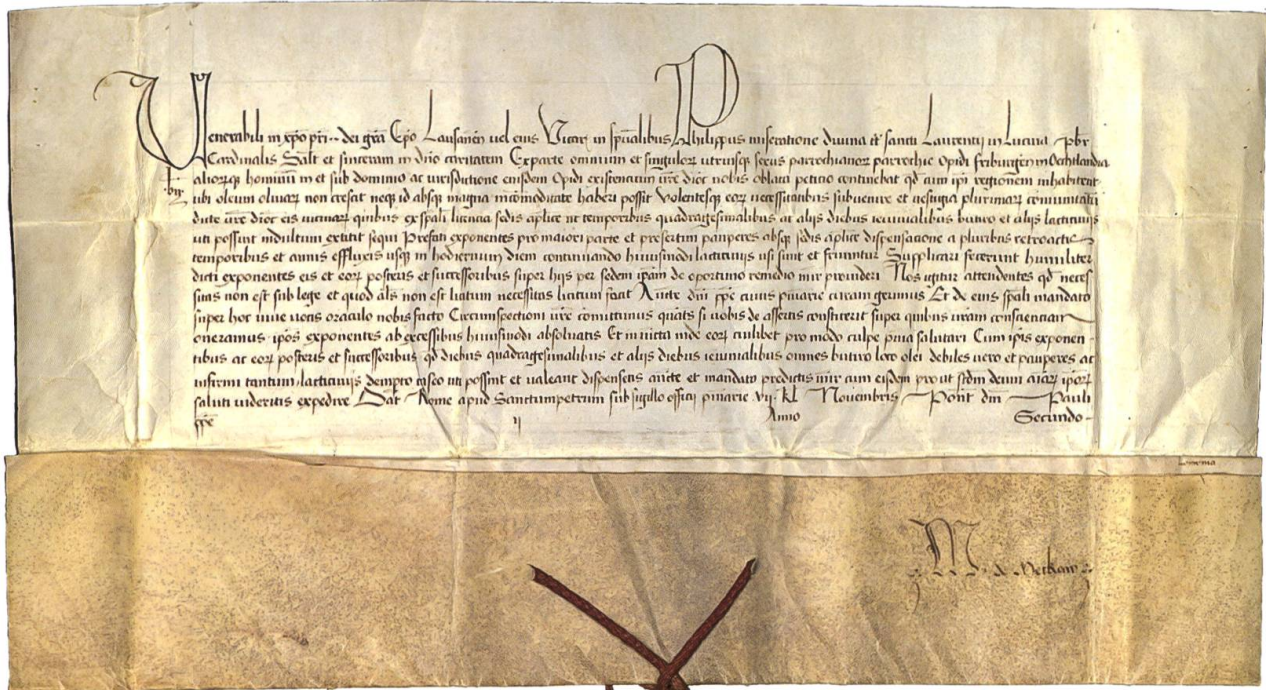 Venerabili in xpo pri ·· dei gra Epo Lausanen uel eius Vicar in spualibus Philippus miseratione diuina tt sancti Laurentij in Lucina pbr
Cardinalis Salt et sinceram in dno caritatem Exparte omnium et singulor utriusq sexus parrochianor parrochie Opidi friburgen in Ochtlandia
aliorq hominum in et sub dominio ac iurisdictione eiusdem Opidi existentium ure dioc nobis oblata peticio continebat qd cum ipi regionem inhabitent
ubi oleum oliuar non crescat neq id absq magna incomoditate haberi possit Volentesq eor necessitatibus subuenire et uestigia plurimar comunitatu
dicte ure dioc eis uicinar quibus ex spali licencia sedis aplice ut temporibus quadragesimalibus ac alijs diebus ieiunialibus butiro et alijs lacticinijs
uti possint indultum extitit sequi Prefati exponentes pro maiori parte et presertim pauperes absq sedis aplice dispensacione a pluribus retroactis
temporibus et annis effluxis usq in hodiernum diem continuando huiusmodi lacticinijs usi sunt et fruuntur Supplicari fecerunt humiliter
dicti exponentes eis et eor posteris et successoribus super hijs per sedem ipam de oportuno remedio mir prouideri Nos igitur attendentes qd neces
sitas non est sub lege et quod als non est licitum necessitas licitum facit Aucte dni ppe cuius pniarie curam gerimus Et de eius spali mandato
super hoc uiue uocis oraculo nobis facto Circumspectioni ure comittimus quats si uobis de assertis constiterit super quibus uram conscienciam
oneramus ipos exponentes ab excessibus huiusmodi absoluatis Et iniuncta inde eor cuilibet pro modo culpe pnia salutari Cum ipis exponen
tibus ac eor posteris et successoribus qd diebus quadragesimalibus et alijs diebus ieiunialibus omnes butiro loco olei debiles uero et pauperes ac
infirmi tantum lacticinijs dempto caseo uti possint et ualeant dispensetis aucte et mandato predictis mir cum eisdem prout scdm deum aiar ipor
saluti uideritis expedire Dat Rome apud Sanctumpetrum sub sigillo officij pniarie vij kl Nouembris Pont dni Pauli
ppe ij Anno Secundo
M de